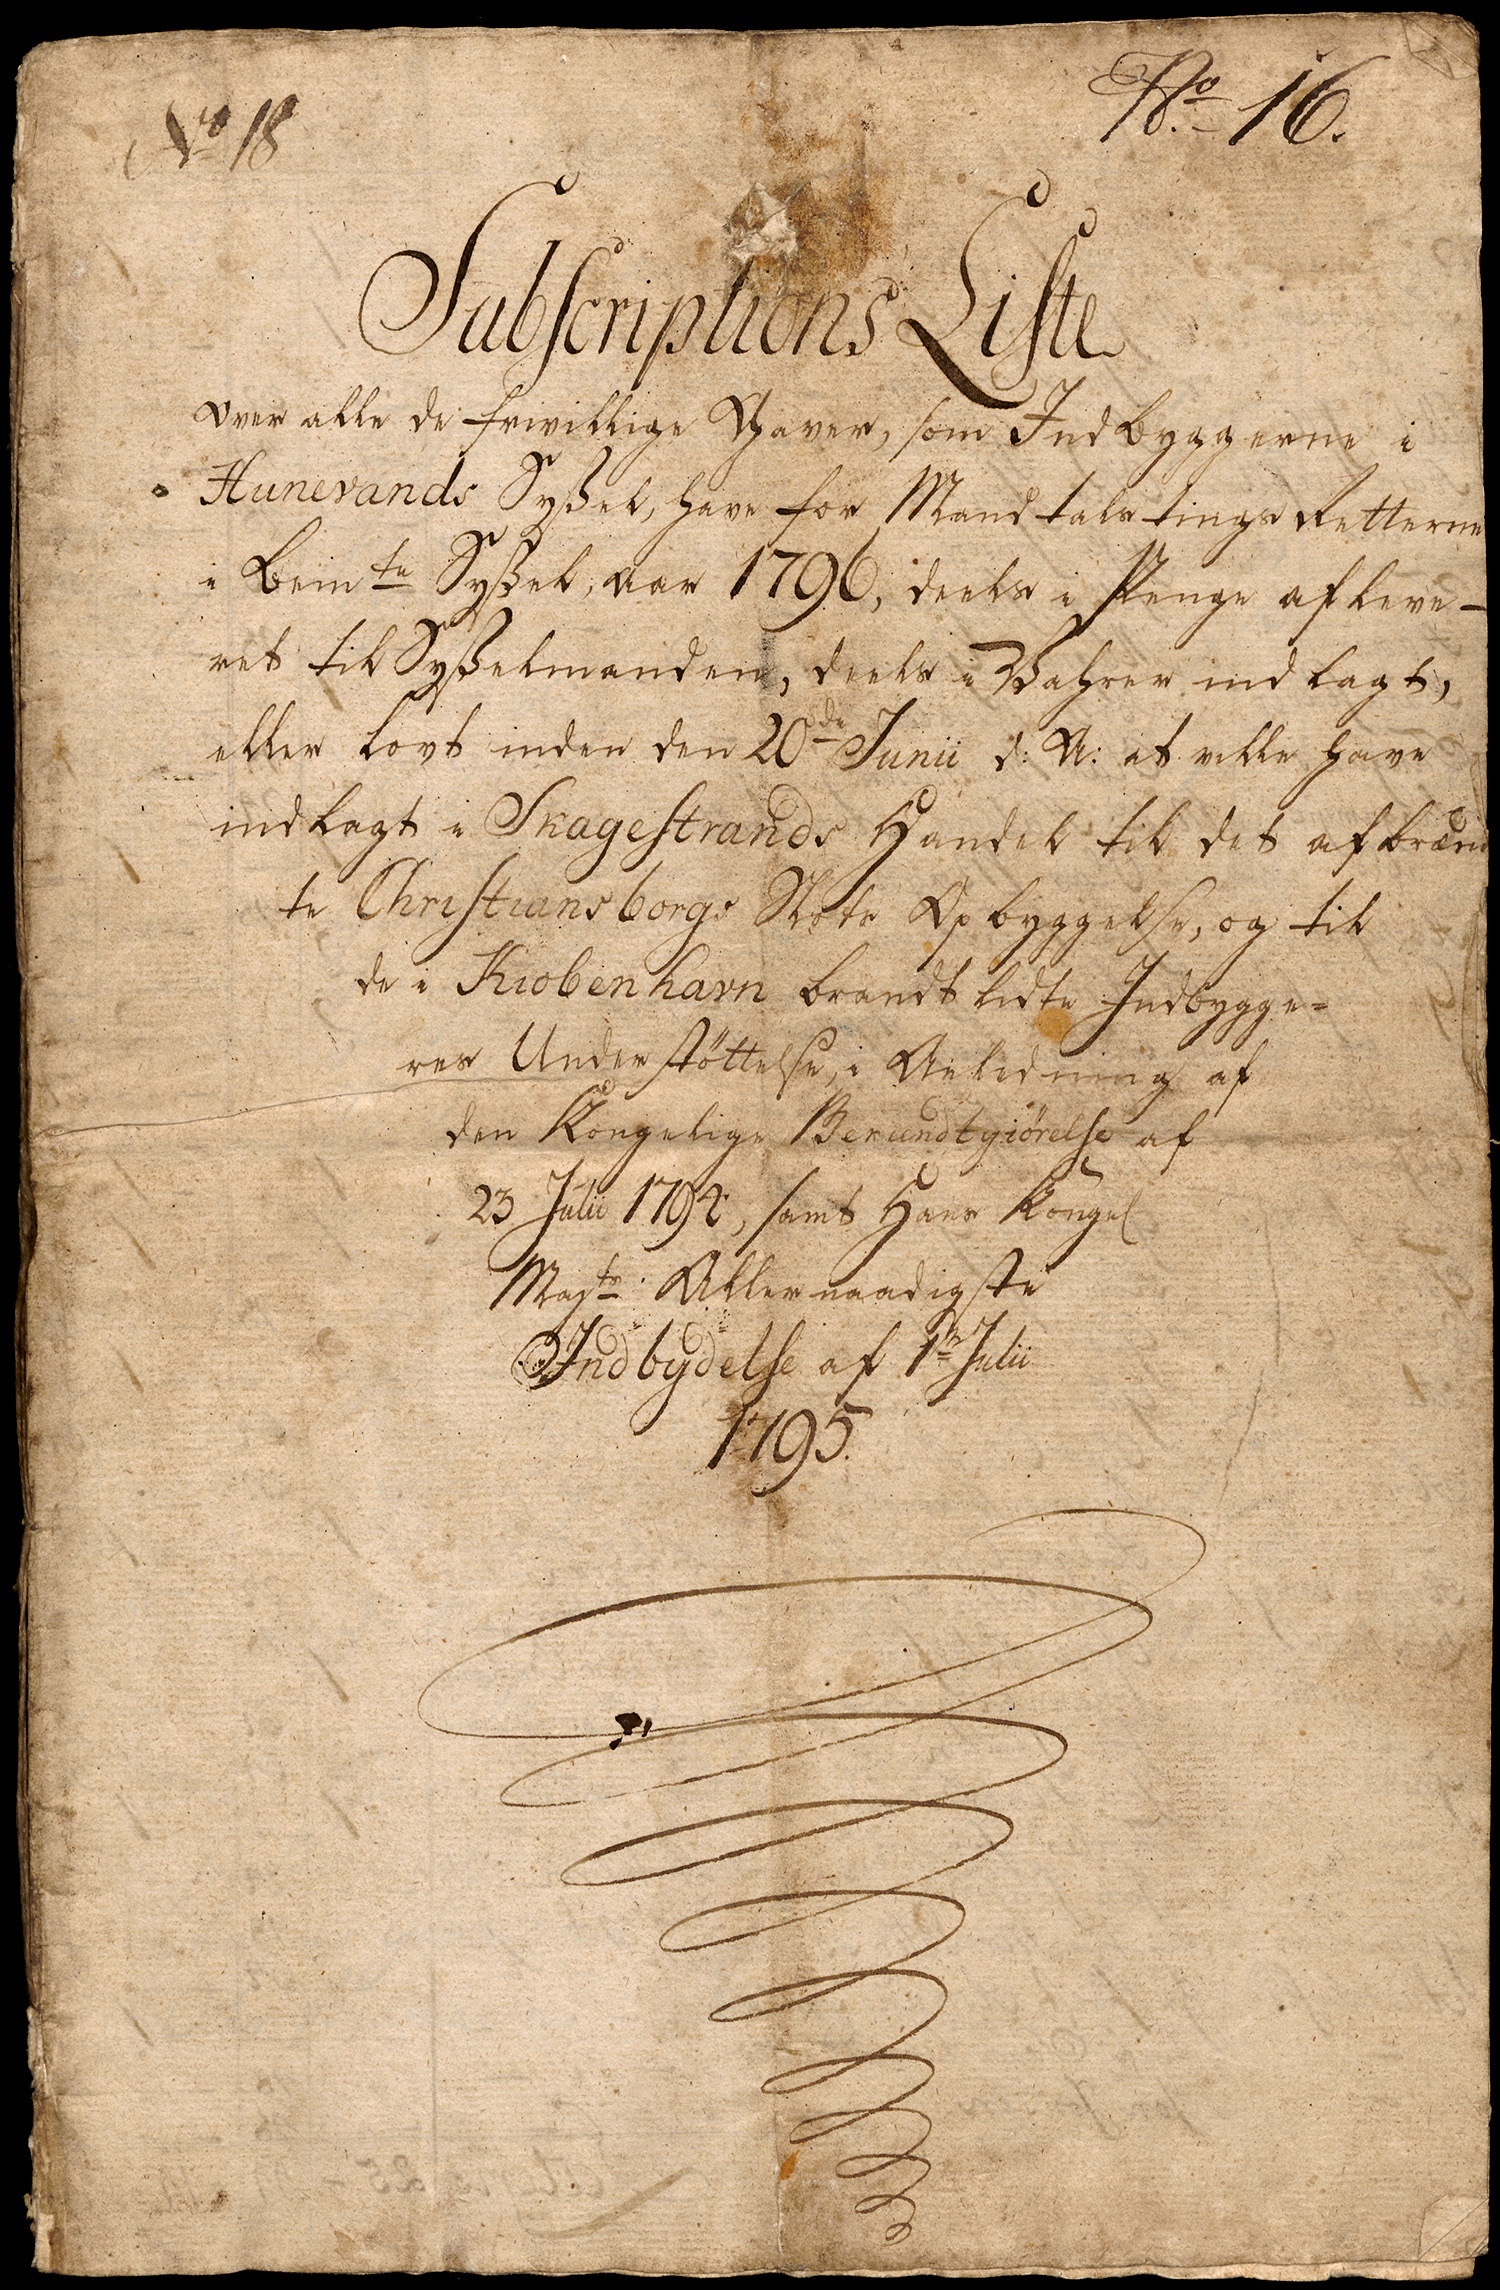 No 18
No. 16.
Subscriptions Liste
over alle de frivillige Gaver, som Indbyggerne i
Hunevands Syßel, have for Mandtals tings Retterne
i bemte Syßel, aar 1796, deels i Penge afleve-
ret til Syßelmanden, deels i Vahrer indlagt,
eller lovt inden den 20de Junii d: A: at ville have
indlagt i Skagestrands Handel til det afbrænd
te Christiansborgs Slots Opbyggelse, og til
de i Kiøbenhavn brandt lidte Indbygge=
res Understøttelse, i Anledning af
den Kongelige Bekiendtgiørelse af
23 Julii 1794, samt Hans Kongel
Majts Allernaadigste
Indbydelse af 1te Julii
1795.